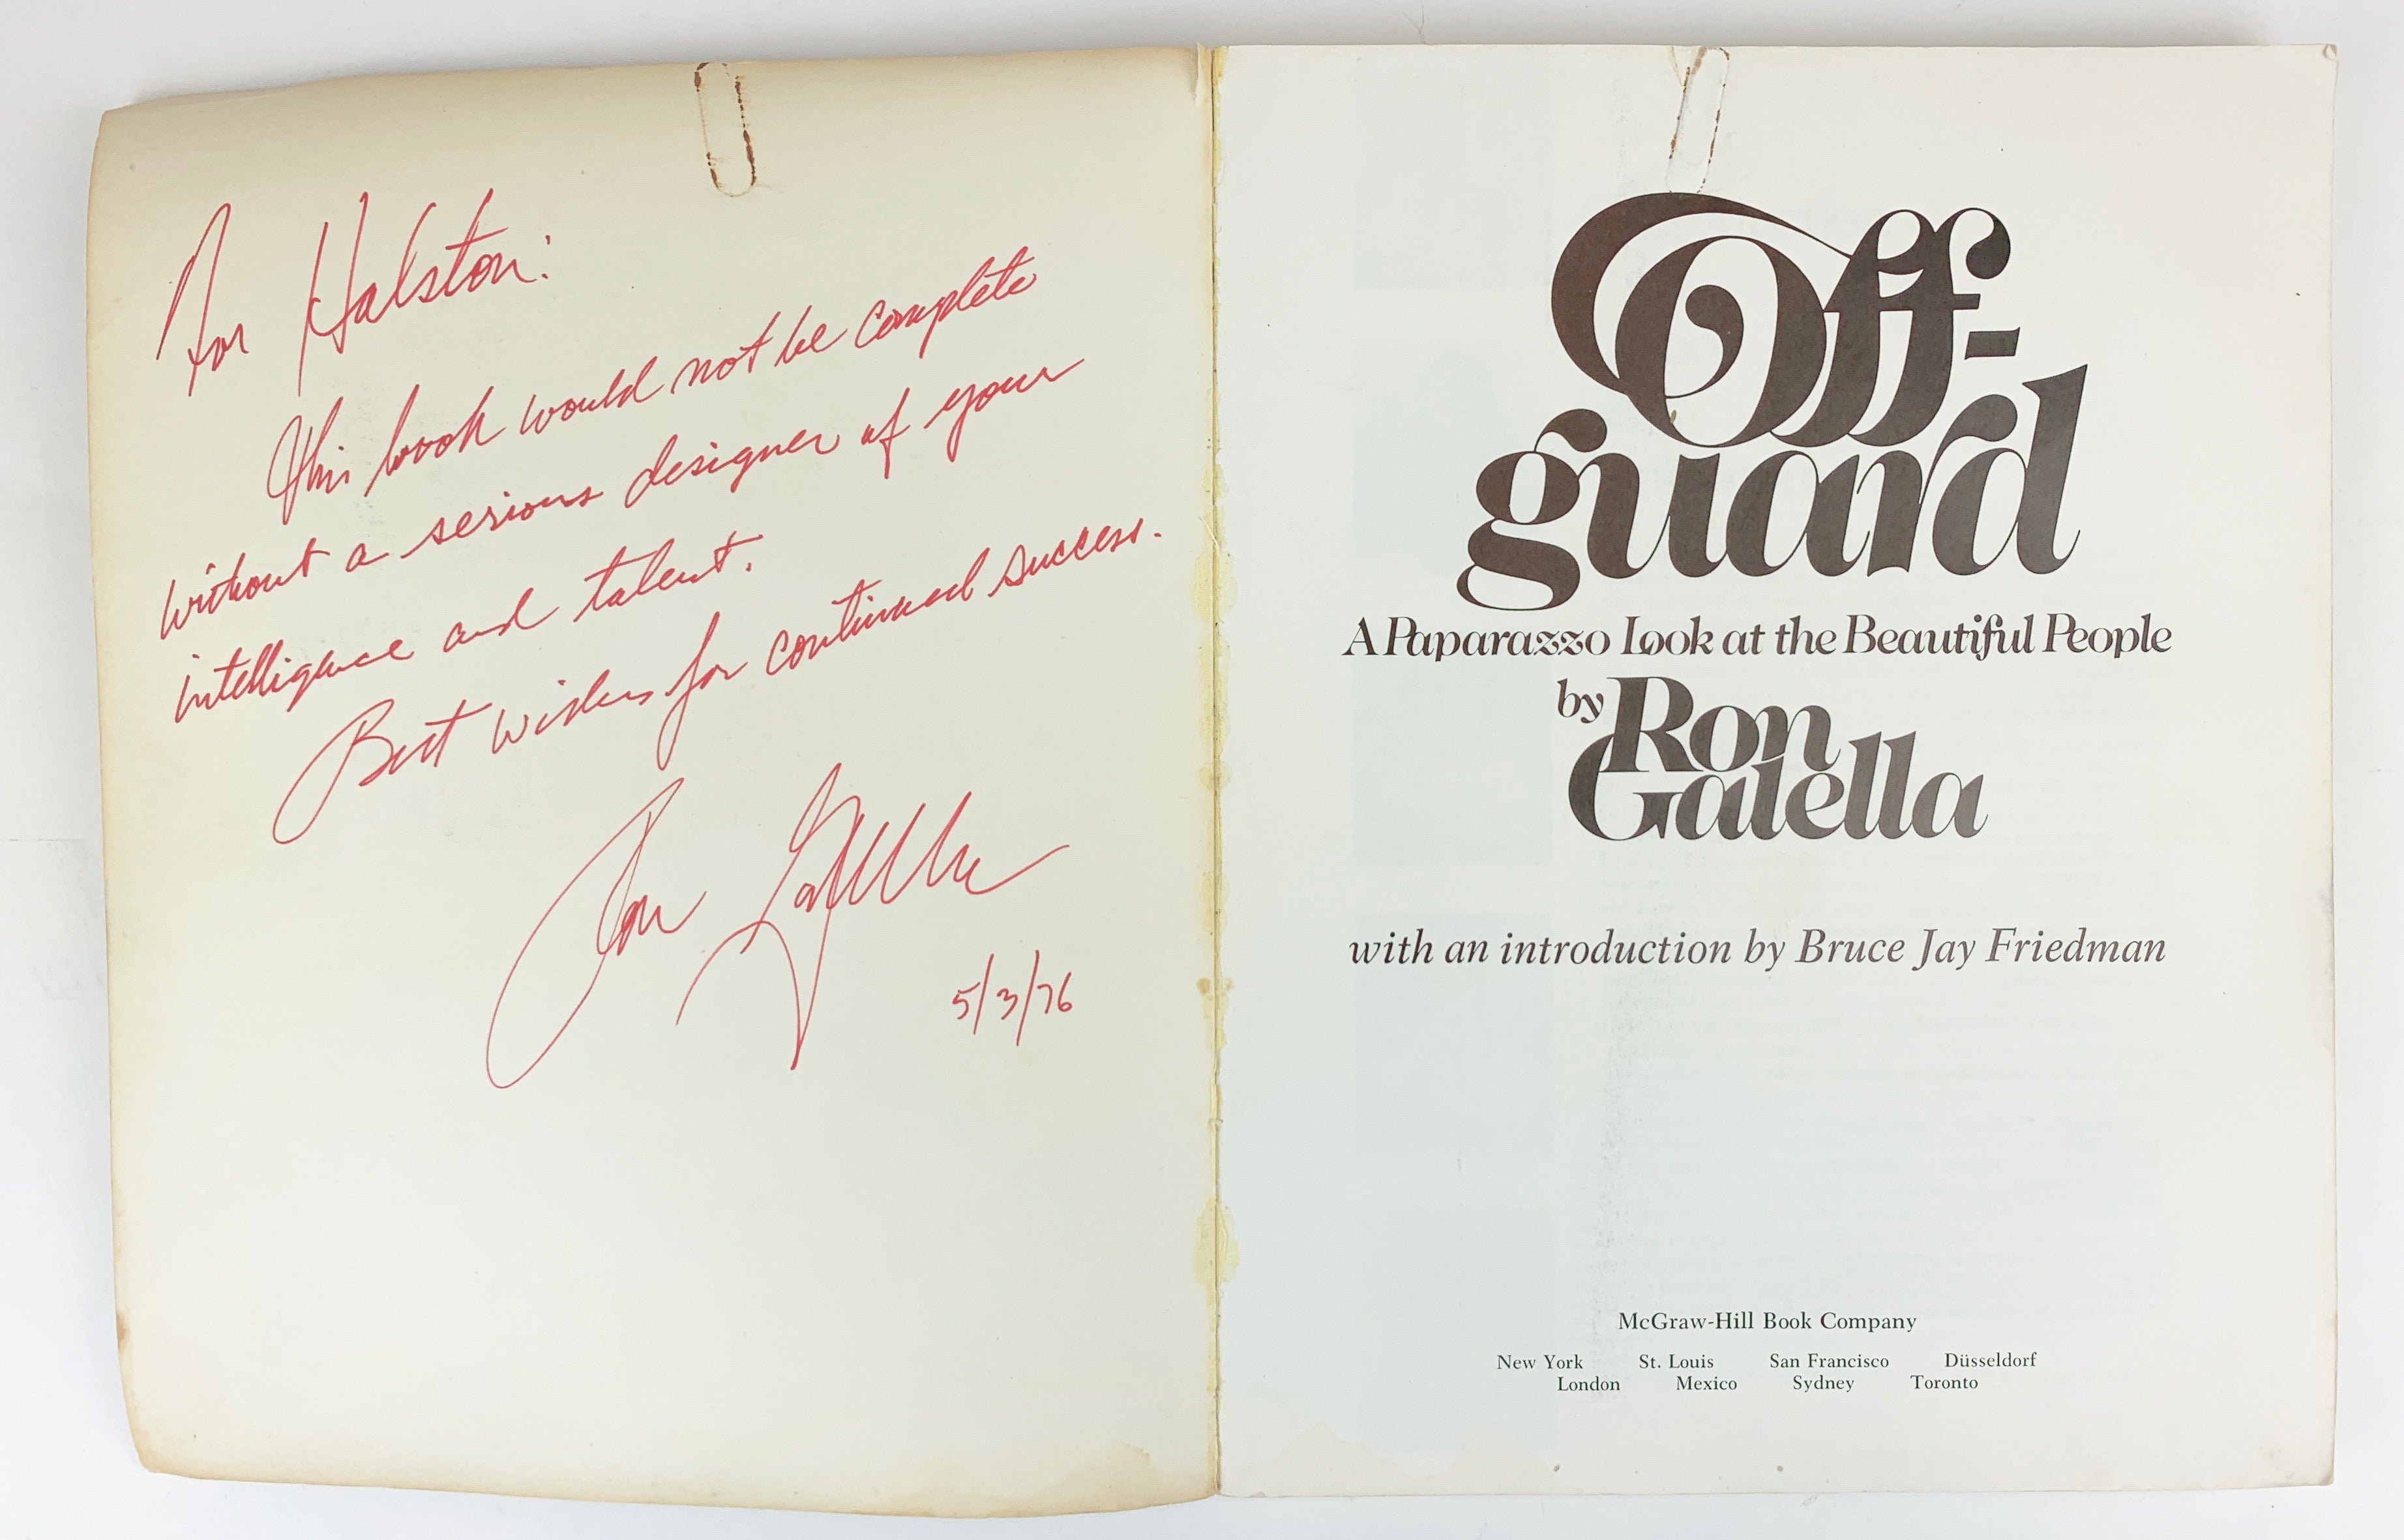 For Halston:
This book would not be complete
without a serious designer of your
intelligence and talent.
Best wishes for continued success.
Ron Galella
5/3/76
Off-
guard
A Paparazzo Look at the Beautiful People
by Ron
Galella
with an introduction by Bruce Jay Friedman
McGraw-Hill Book Company
New York St. Louis San Francisco Düsseldorf
London Mexico Sydney Toronto